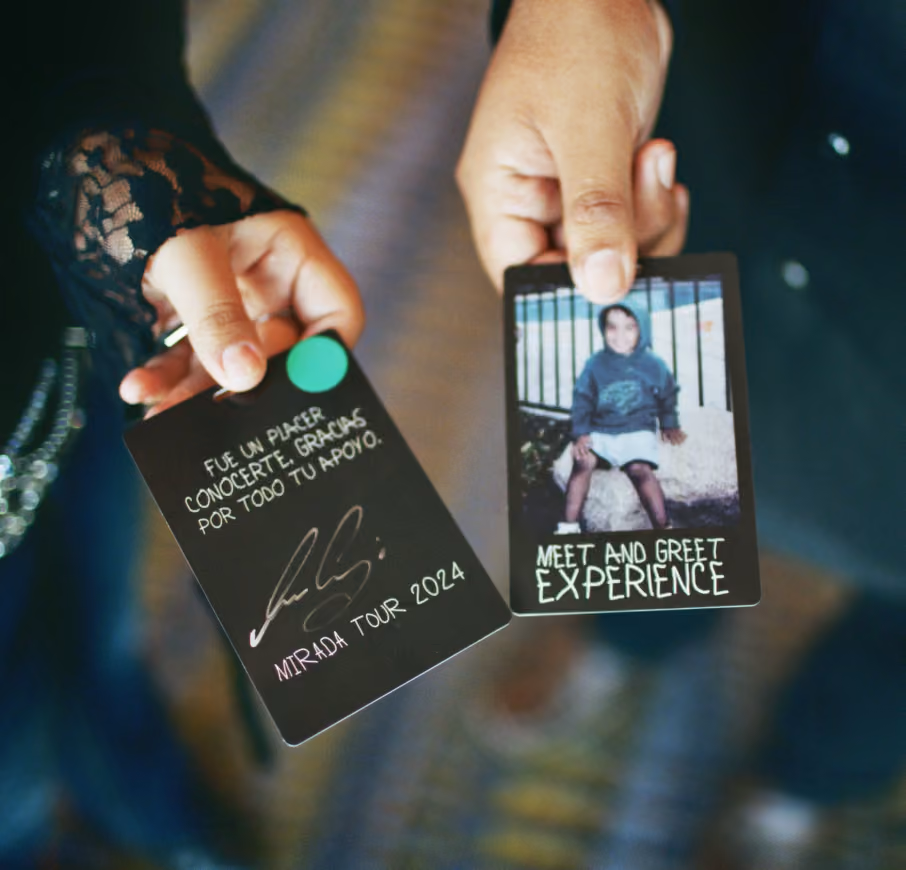 FUE UN PLACER
CONOCERTE, GRACIAS
POR TODO TU APOYO.
MIRADA TOUR 2024
MEET AND GREET
EXPERIENCE